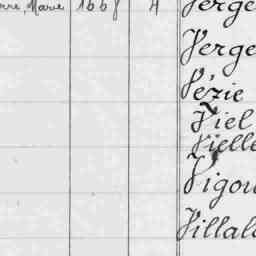 erre, Marie 1668 4 Verge
Verge
Vézie
Viel
Vielle
Vigou
Villal